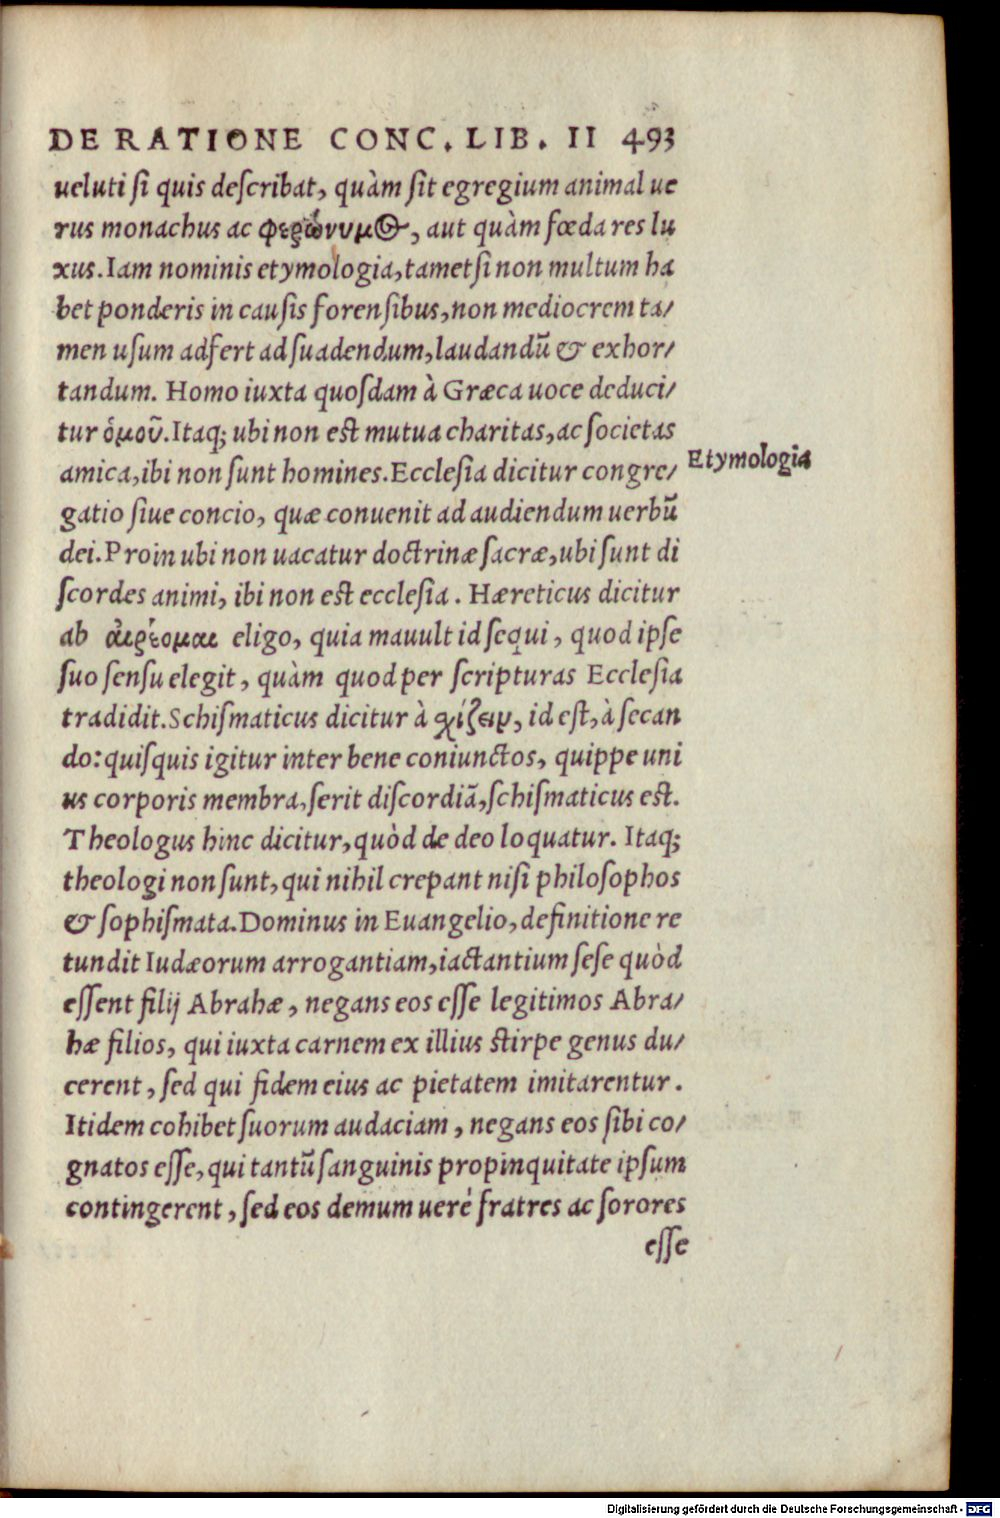 DE RATIONE CONC. LIB. II 493
ueluti si quis describat, quàm sit egregium animal ue
rus monachus ac φερώνυμος, aut quàm fœda res lu
xus. Iam nominis etymologia, tametsi non multum ha
bet ponderis in causis forensibus, non mediocrem ta/
men usum adfert ad suadendum, laudandũ & exhor/
tandum. Homo iuxta quosdam à Græca uoce deduci/
tur ὁμοῦ. Itaq; ubi non est mutua charitas, ac societas
amica, ibi non sunt homines. Ecclesia dicitur congre/
Etymologia
gatio siue concio, quæ conuenit ad audiendum uerbũ
dei. Proin ubi non uacatur doctrinæ sacræ, ubi sunt di
scordes animi, ibi non est ecclesia. Hæreticus dicitur
ab αἱρέομαι eligo, quia mauult id sequi, quod ipse
suo sensu elegit, quàm quod per scripturas Ecclesia
tradidit. Schismaticus dicitur à σχίζειν, id est, à secan
do: quisquis igitur inter bene coniunctos, quippe uni
us corporis membra, serit discordiã, schismaticus est.
Theologus hinc dicitur, quòd de deo loquatur. Itaq;
theologi non sunt, qui nihil crepant nisi philosophos
& sophismata. Dominus in Euangelio, definitione re
tundit Iudæorum arrogantiam, iactantium sese quòd
essent filij Abrahæ, negans eos esse legitimos Abra/
hæ filios, qui iuxta carnem ex illius stirpe genus du/
cerent, sed qui fidem eius ac pietatem imitarentur.
Itidem cohibet suorum audaciam, negans eos sibi co/
gnatos esse, qui tantũ sanguinis propinquitate ipsum
contingerent, sed eos demum uerè fratres ac sorores
esse
Digitalisierung gefördert durch die Deutsche Forschungsgemeinschaft - DFG